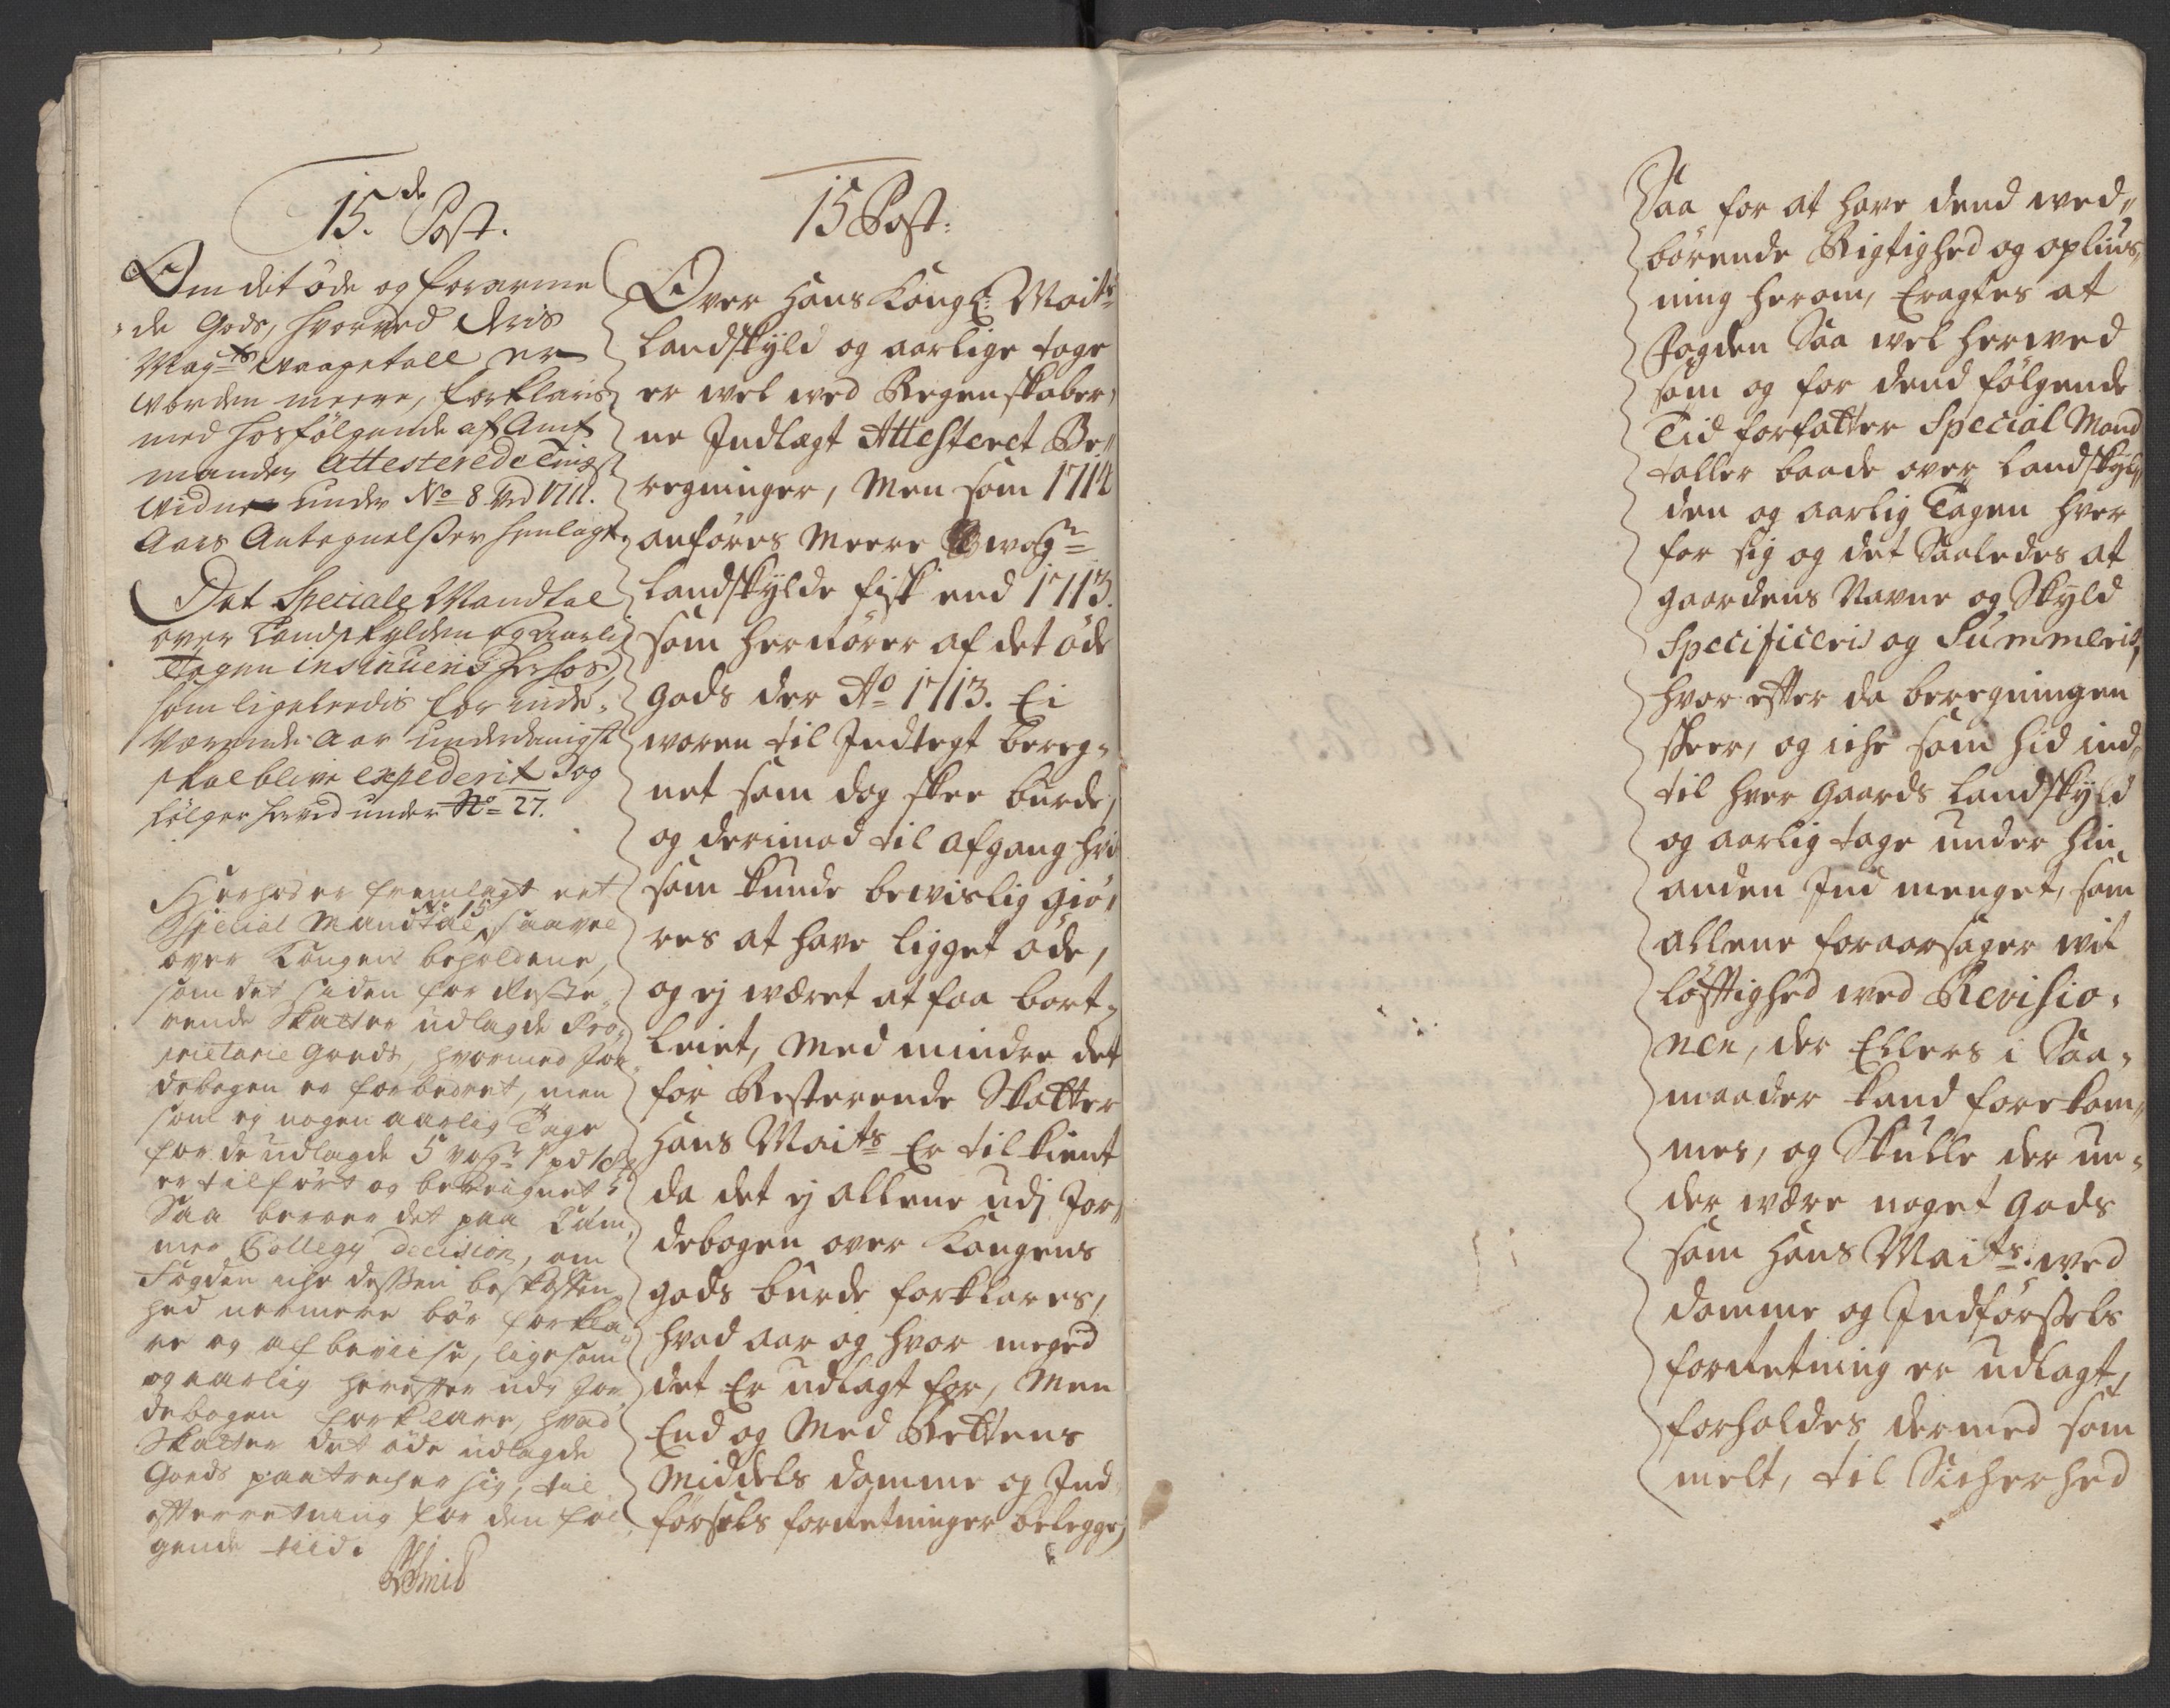 15.de Post.
Om det öde og forarme
de Gods, hvorved
Mag:ts waagetall er
worden meere, forklaris
med hosfölgende af Amt
manden Attesterede Tings
widne under No 8 ved 1711.
Aars Antegnelsser henlagt.
Det Speciale Mandtal
over Landskylden og aarlig
Tagen insinueris herhos,
som ligeleedis for inde-
værende Aar underdanigst
skal blive expederit og
fölger herved under No 27.
Herhos er fremlagt eet
Special Mandtal No 15 saavel
over Kongens beholdene,
som det siden for Reste-
rende Skatter udlagde Pro-
prietarie Gods, hvormed Jor-
debogen er forbedret, men
som ej nogen aarlig Tage
for de udlagde 5 wog:r 1 pd
er tilfört og bereignet
Saa beroer det paa Cam-
mer Collegy decision, om
Fogden iche dessen beskaffen-
hed nermere bör forkla-
re og afbeviise, ligesom
og aarlig herefter udj Jor-
debogen forklare, hvad
Skatter det öde udlagde
Gods paatrecher sig, til
efterretning for den föl-
gende tiid.
15 Post:
Over Hans Kongl: Maits
Landskyld og aarlige tage
er wel wed Regenskaber-
ne Indlagt Attesteret Be-
regninger, Men som 1714
anföres Meere wog:r
Landskylde fisk end 1713.
som herrörer af det öde
Gods der Ao 1713. Ei
woren til Indtegt bereg-
net som dog skee burde,
og derimod til afgang hvis
som kunde bewislig giö-
res at have ligget öde,
og ej wæret at faa bort-
leiet, Med mindre det
for Resterende Skatter
Hans Maits Er tilkient
da det ej allene udj Jor-
debogen over Kongens
gods burde forklares,
hvad aar og hvor meged
det Er udlagt for, Men
End og Med Rettens
Middels domme og Ind-
försels forretninger belegges
Saa for at have dend wed-
börende Rigtighed og oplius-
ning herom, Eragtes at
Fogden Saa wel herwed
som og for dend fölgende
Tid forfatter Special Mand
taller baade over Landskyl-
den og aarlig Tagen hver
for sig og det Saaledes at
gaardens Navne og Skyld
Specificeris og Summeris,
hvor efter da beregningen
skeer, og iche som hid ind-
til hver gaards Landskyld
og aarlig tage under hin-
anden Ind menget, som
allene foraarsager wit
löftighed wed Revisio-
nen, der Ellers i Saa-
maader kand forekom-
mes, og Skulle der un-
der wære noget gods
som Hans Maits. wed
domme og Indförssels
forretning er udlagt,
forholdes dermed som
melt, til Sicherhed